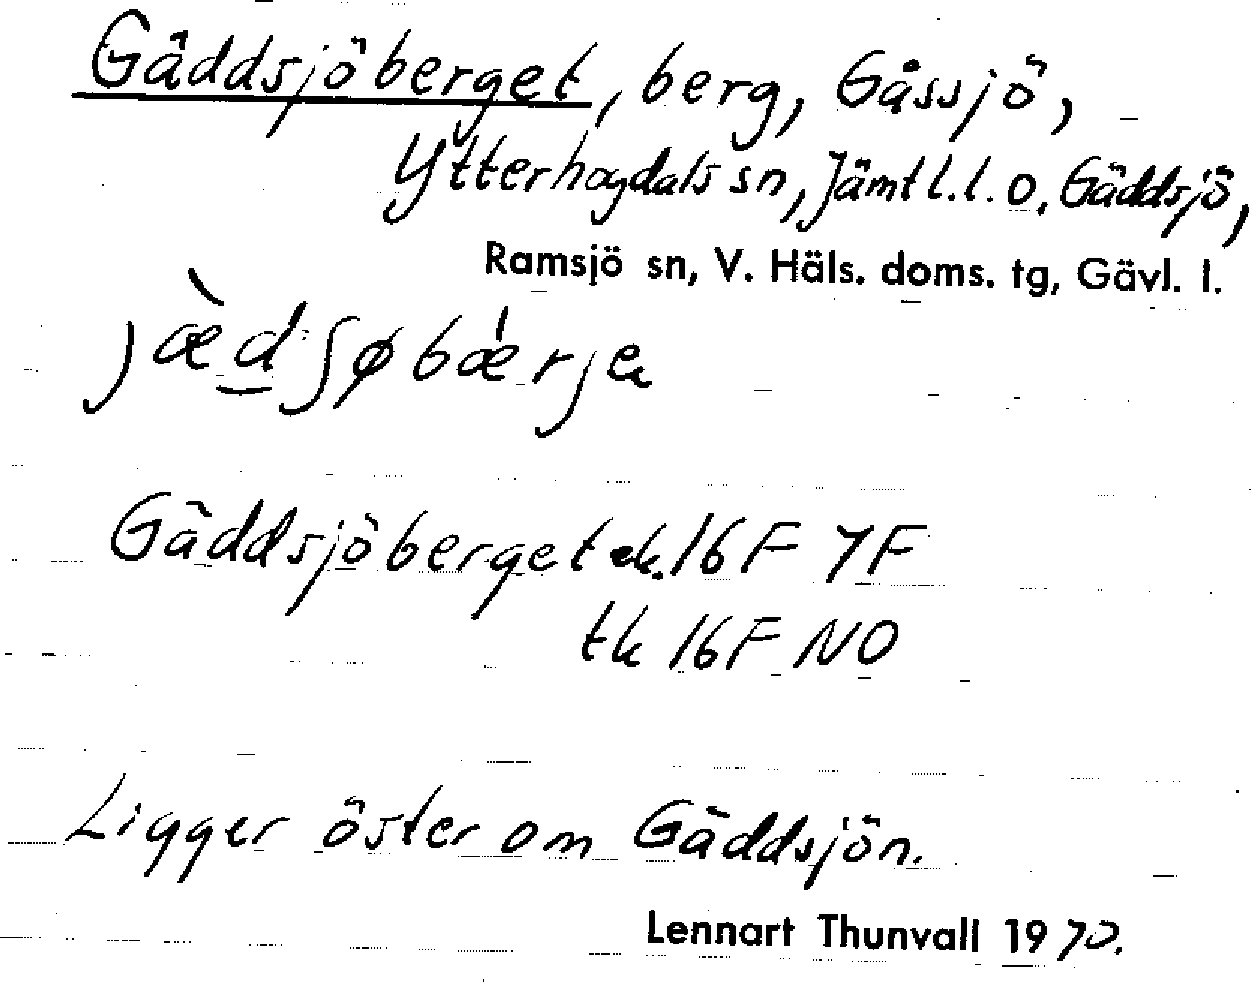 Gäddsjöberget, berg, Gåssjö,
Ytterhogdals sn, Jämtl. l. o. Gäddsjö,
Ramsjö sn, V. Häls. doms. tg, Gävl. l.
jæ̀dʃøbǽrje
Gäddsjöberget ek. 16F 7F
tk 16F NO
Ligger öster om Gäddsjön.
Lennart Thunvall 1970.